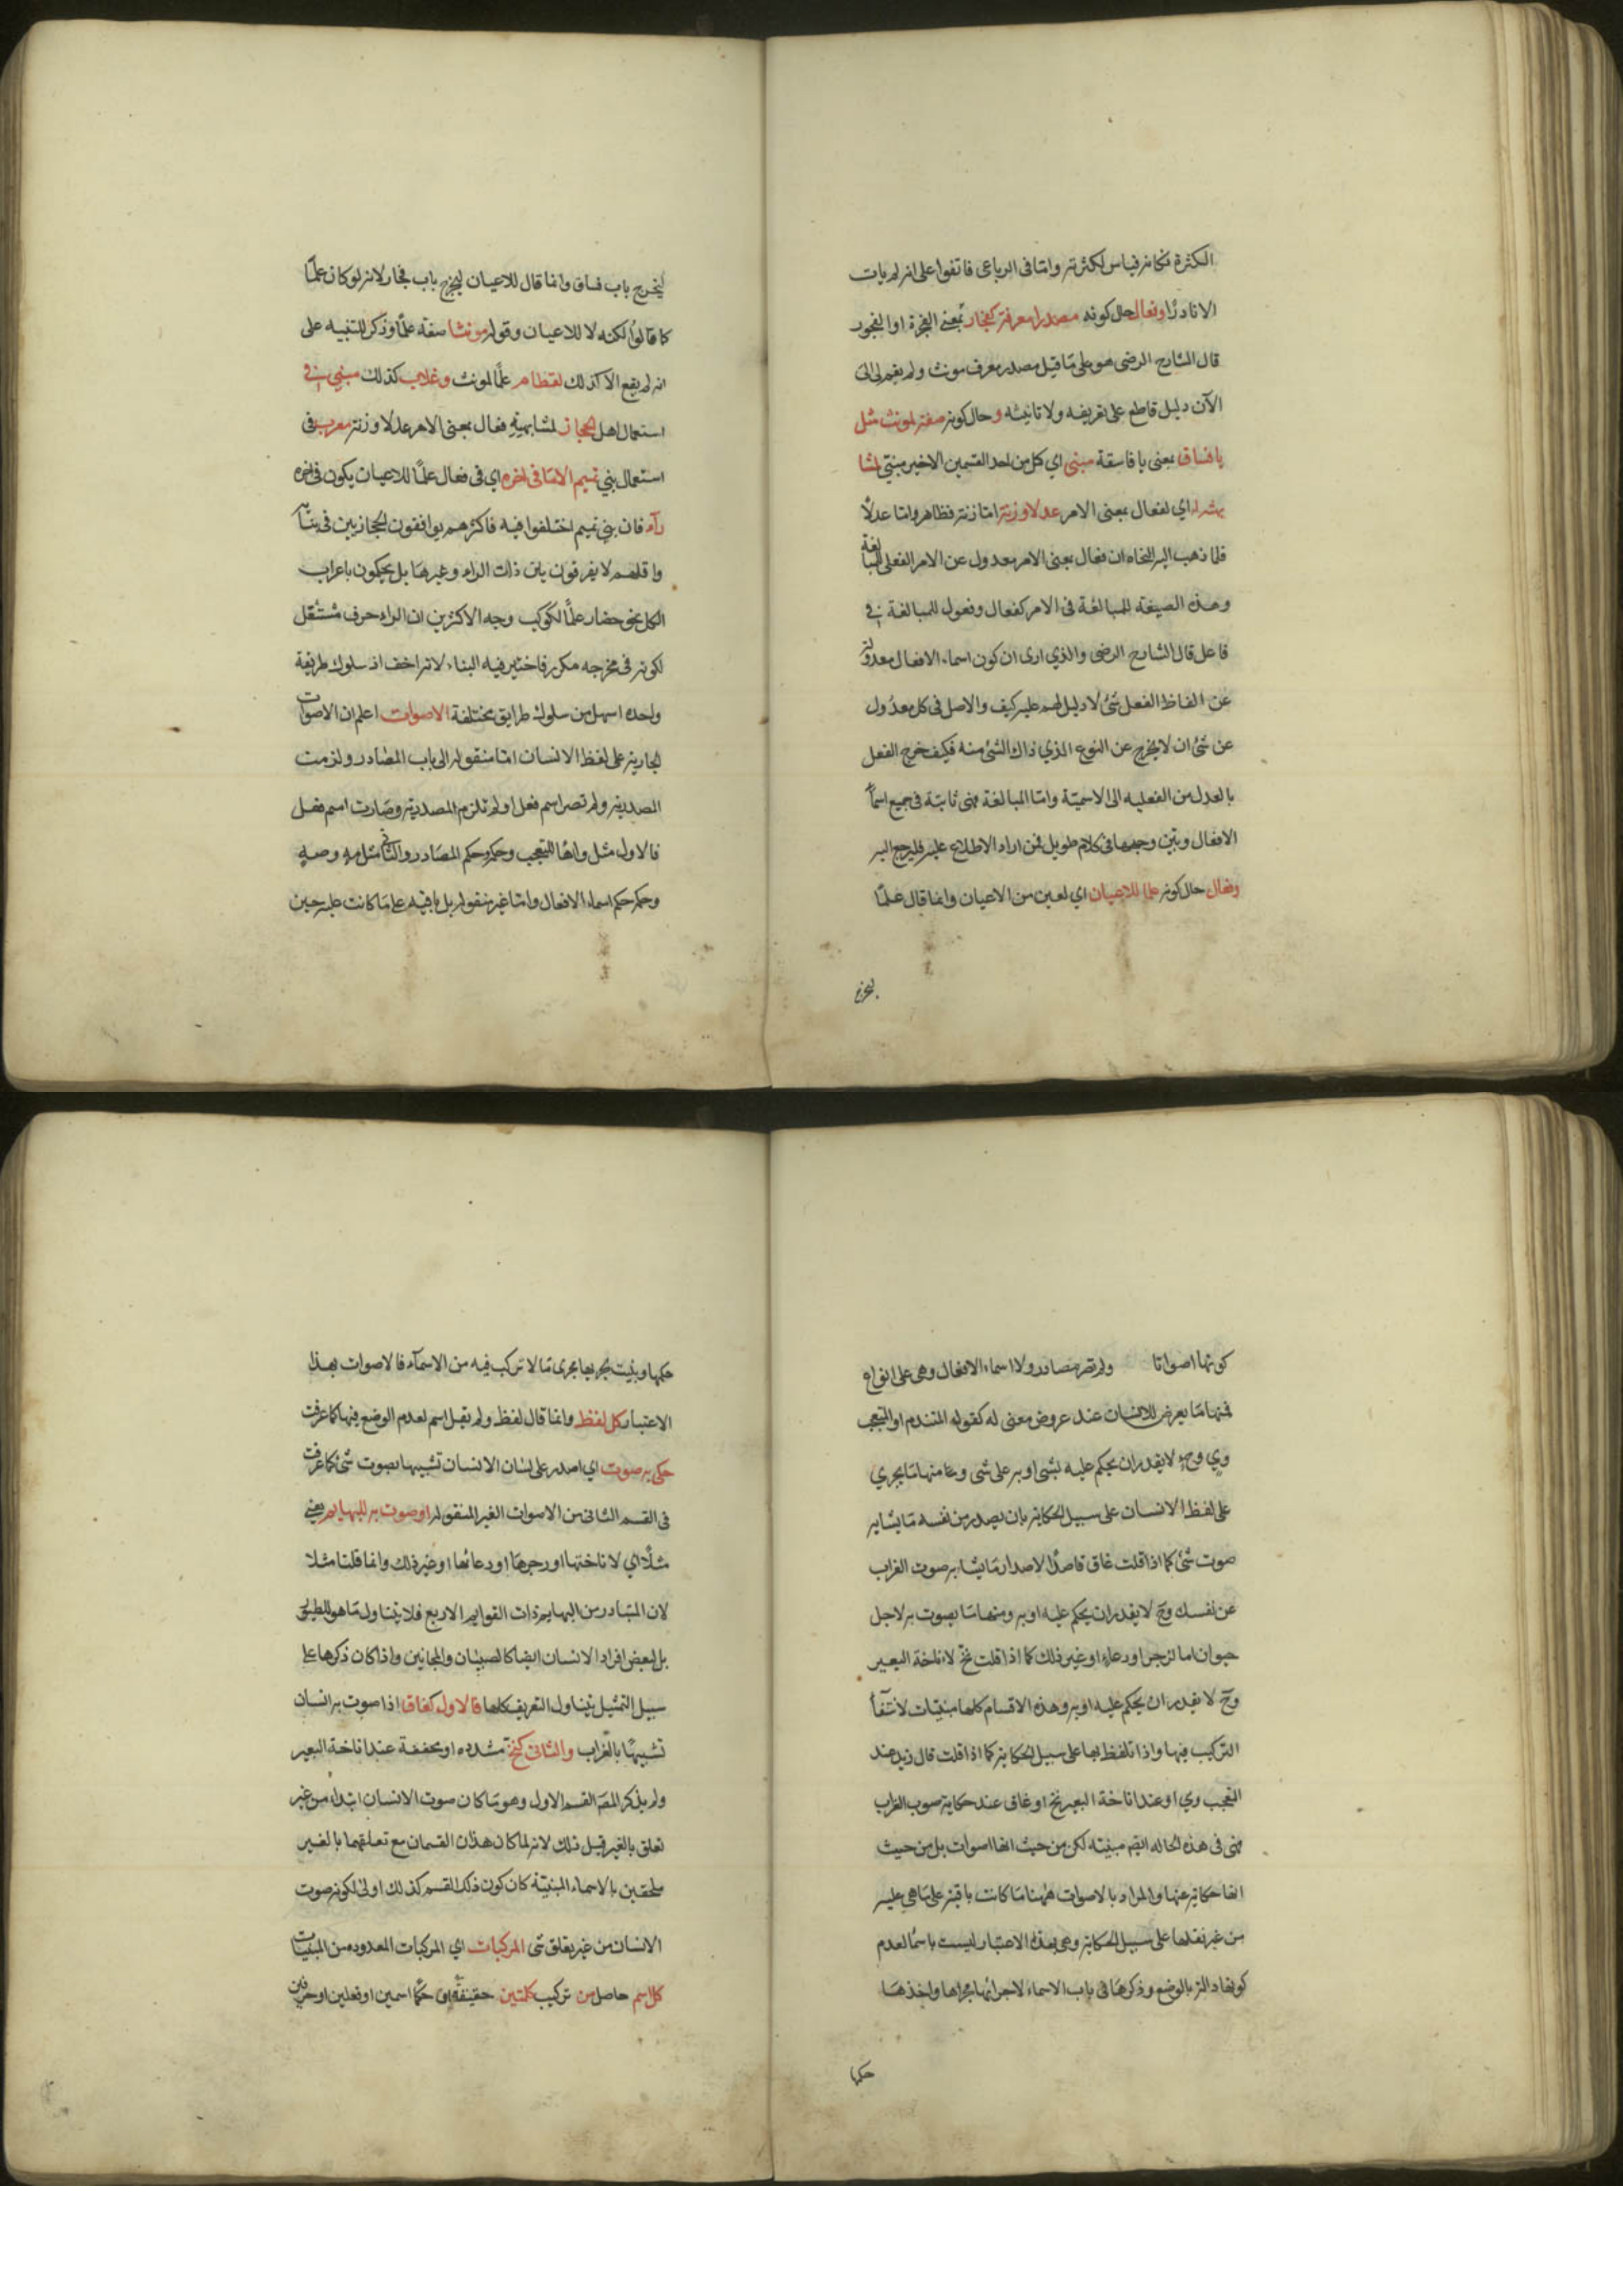 الكثرة فكانه قياس لكثرته واما فى الرباعى فاتفقوا على انه لم يات
الا نادرا وفعال حال كونه مصدرا معرفة كفجار بمعنى الفجرة او الفجور
قال الشارح الرضى هو على ما قيل مصدر معرف مونث ولم يقم لى الى
الآن دليل قاطع على تعريفه ولا تانيثه وحال كونه صفة لمونث مثل
يا فساق بمعنى يا فاسقة مبنى اى كل من احد القسمين الاخير مبنى لمشا
بهته له اي لفعال بمعنى الامر عدلا وزنة اما زنة فظاهر واما عدلا
فلما ذهب اليه النحاه ان فعال بمعنى الامر معدول عن الامر الفعلى للمبالغة
وهذه الصيغة للمبالغة فى الامر كفعال وفعول للمبالغة فى
فاعل قال الشارح الرضى والذي ارى ان كون اسماء الافعال معدولة
عن الفاظ الفعل شئ لا دليل لهم عليه كيف والاصل فى كل معدول
عن شئ ان لا يخرج عن النوع الذي ذاك الشئ منه فكيف خرج الفعل
بالعدل من الفعليه الى الاسمية واما المبالغة فهى ثابتة فى جميع اسماء
الافعال وبين وجهها فى كلام طويل فمن اراد الاطلاع عليه فليرجع اليه
وفعال حال كونه علما للاعيان اي لعين من الاعيان وانما قال علمًا
ليخرج
ليخرج باب فساق وانما قال للاعيان ليخرج باب فجار لانه لو كان علمًا
كما قالوا لكنه لا للاعيان وقوله مونثا صفة علمًا وذكر للتنبيه على
انه لم يقع الا كذلك لقطام علمًا لمونث وغلاب كذلك مبنى فى
استعمال اهل الحجاز لمشابهته فعال بمعنى الامر عدلا وزنة معرب فى
استعمال بني تميم الا ما فى اخره اي فى فعال علمًا للاعيان يكون فى اخره
رآء فان بني تميم اختلفوا فيه فاكثرهم يوافقون الحجازيين فى بنائه
واقلهم لا يفرقون بين ذات الراء وغيرها بل يحكمون باعراب
الكل نحو حضار علمًا لكوكب وجه الاكثرين ان الراء حرف مستثقل
لكونه فى مخرجه مكرر فاختير فيه البناء لانه اخف اذ سلوك طريقة
واحدة اسهل من سلوك طرايق مختلفة الاصوات اعلم ان الاصوات
الجارية على لفظ الانسان اما منقولة الى باب المصادر ولزمت
المصدرية ولم تصر اسم فعل او لم تلزم المصدرية وصارت اسم فعل
فالاول مثل واها للتعجب وحكمه حكم المصادر والثانى مثل مه وصه
وحكمه حكم اسماء الافعال واما غير منقولة بل باقية على ما كانت عليه حين
كونها اصواتا ولم تصر مصادر ولا اسماء الافعال وهى على انواع
فمنها ما يعرض للانسان عند عروض معنى له كقوله المتندم او المتعجب
وي وح لا يقدر ان يحكم عليه بشى او به على شى ومنها ما يجري
على لفظ الانسان على سبيل الحكاية بان يصدر من نفسه ما يشابه
صوت شئ كما اذا قلت غاق قاصدًا لاصدار ما يشابه صوت الغراب
عن نفسك وح لا يقدر ان يحكم عليه او به ومنها ما يصوت به لاجل
حيوان اما لزجر او دعاء او غير ذلك كما اذا قلت نخ لاناخة البعير
وح لا يقدر ان يحكم عليه او به وهذه الاقسام كلها مبنيات لانتفآء
التركيب فيها واذا تلفظ بها على سبيل الحكاية كما اذا قلت قال زيد عند
التعجب وي او عند اناخة البعير نخ او غاق عند حكاية صوت الغراب
فهى فى هذه الحاله ايضم مبنيه لكن من حيث انها اصوات بل من حيث
انها حكاية عنها والمراد بالاصوات ههنا ما كانت باقية على ما هى عليه
من غير نقلها على سبيل الحكاية وهى بهذا الاعتبار ليست باسما لعدم
كونها دالة بالوضع وذكرها فى باب الاسماء لاجرائها مجراها واخذها
حكمها
حكمها وبنيت لجريها مجرى ما لا تركيب فيه من الاسمآء فالاصوات بهذا
الاعتبار كل لفظ وانما قال لفظ ولم يقل اسم لعدم الوضع فيها كما عرفت
حكى به صوت اي اصدر على لسان الانسان تشبيها بصوت شئ كما عرفت
فى القسم الثانى من الاصوات الغير المنقوله او صوت به للبهايم يعنى
مثلًا اي لاناختها او زجرها او دعائها او غير ذلك وانما قلنا مثلا
لان المتبادر من البهايم ذات القوايم الاربع فلا يتناول ما هو للطيور
بل لبعض افراد الانسان ايضا كالصبيان والمجانين واذا كان ذكرها على
سبيل التمثيل يتناول التعريف كلها فالاول كغاق اذا صوت به انسان
تشبيهًا بالغراب والثانى كنخ مشدده او مخففة عند اناخة البعير
ولم يذكر المصَ القسم الاول وهو ما كان صوت الانسان ابتداء من غير
تعلق بالغير قيل ذلك لانه لما كان هذان القسمان مع تعلقهما بالغير
ملحقين بالاسماء المبنية كان كون ذلك القسم كذلك اولى لكونه صوت
الانسان من غير تعلق شى المركبات اي المركبات المعدوده من المبنيات
كل اسم حاصل من تركيب كلمتين حقيقة او حكمًا اسمين او فعلين او حرفين